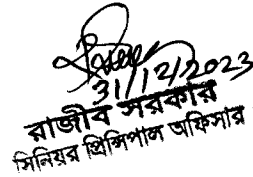 31/12/2023
রাজীব সরকার
সিনিয়র প্রিন্সিপাল অফিসার